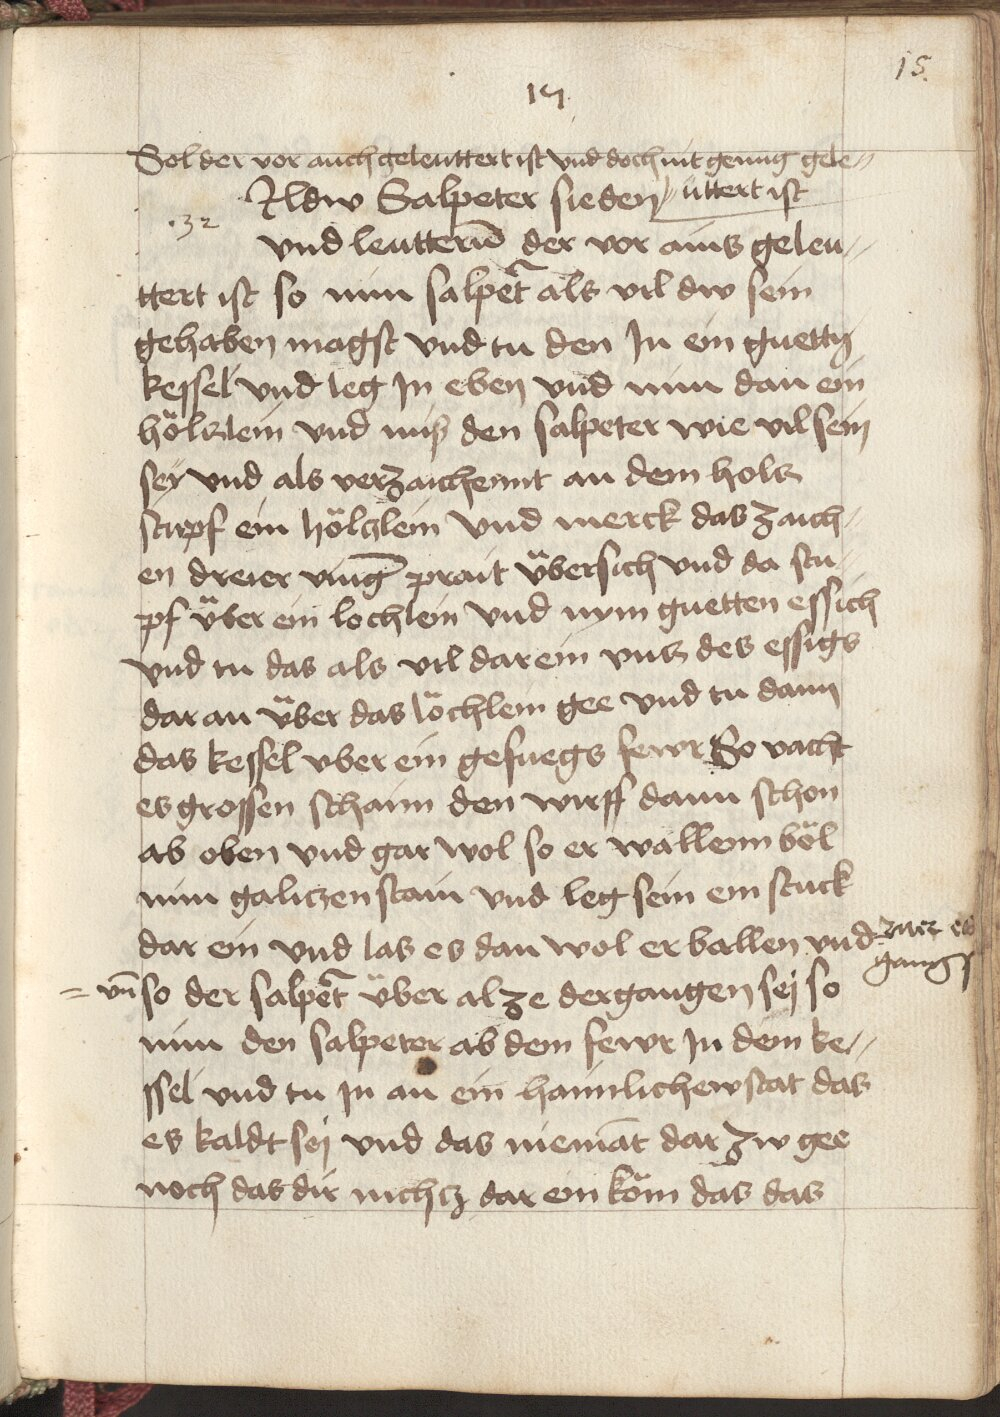 15.
15
Sol der vor auch geleuttert ist vnd doch nit genug gele=
Wildw Salpeter sieden / üttert ist
.32
vnd leutterñ der vor ains geleu=
ttert ist so nim salpet̃ als vil dw sein
gehaben magst vnd tu den Jn ein guetty
kessel vnd leg Jn eben vnd nim dan ein
hölzlein vnd miß den salpeter wie vil sein
sey vnd als verzaichennt an dem holz
stupf ein hölczlein vnd merck das zaich=
en dreier ving̃ prait übersich vnd da stu=
pf über ein lochlein vnd nym guetten essich
vnd tu das als vil darein vnz des essigs
dar an über das löchlein gee vnd tu dann
das kessel vber ein gefuegs fewr So vacht
es grossen schaim den wirff dann schon
ab oben vnd gar wol so er wallenn wöl
nim galiczenstain vnd leg sein ein stuck
dar ein vnd las es dan wol er wallen vnd zuer
gangs
= vñ so der salpet̃ über al ze dergangen sej so
nim den salpeter ab dem fewr Jn dem ke=
ssel vnd tu Jn an ein haimlichew stat das
es kaldt sej vnd das niemãt dar zw gee
noch das dir nichcz dar ein köm das das